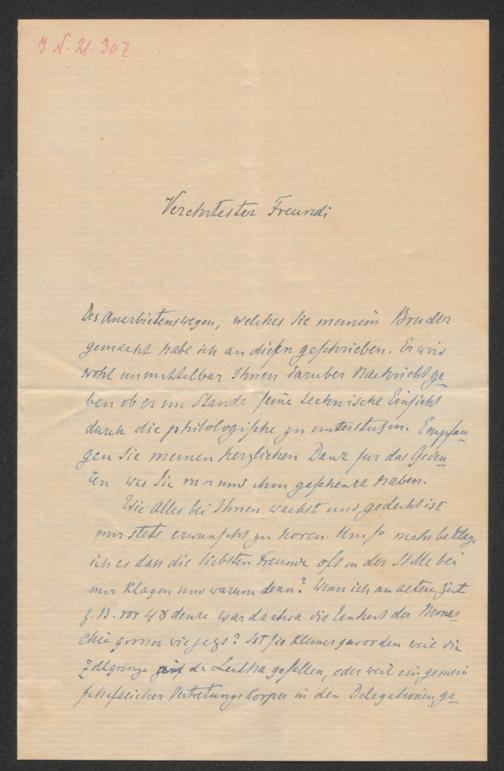 I. N. 21.307
Verehrtester Freund!
Des Anerbietens wegen, welches Sie meinem Bruder
gemacht habe ich an diesen geschrieben. Er wird
wohl unmittelbar Ihnen darüber Nachricht ge_
ben ob er im Stande seine technische Einsicht
durch die philologische zu unterstützen. Empfan_
gen Sie meinen herzlichen Dank für das Geden_
ken was Sie mir und ihm geschenkt haben.
Wie Alles bei Ihnen wächst und gedeiht ist
mir stets erwünscht zu hören. Um so mehr beklage
ich es dass die liebsten Freunde oft in der Stille bei
mir klagen und warum denn? Wenn ich an alte Zeit
z. B. vor 48 denke war da etwa die Einheit der Monar_
chie grösser wie jetzt? Ist sie kleiner geworden weil die
Zollgrenze an der Leitha gefallen, oder weil ein gemein
schaftlicher Vertretungskörper in den Delegationen ge_